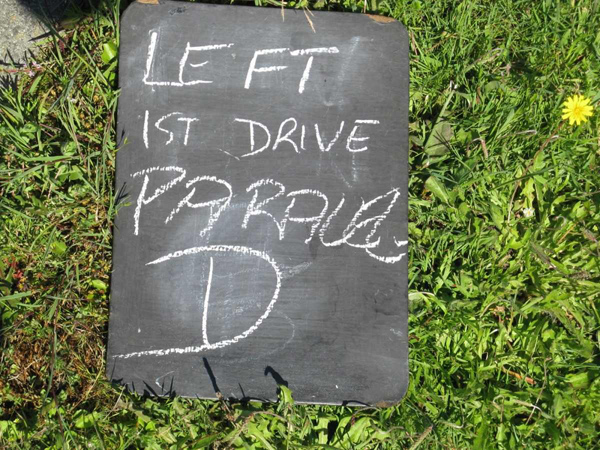 LEFT
1ST DRIVE
PARALLEL
D